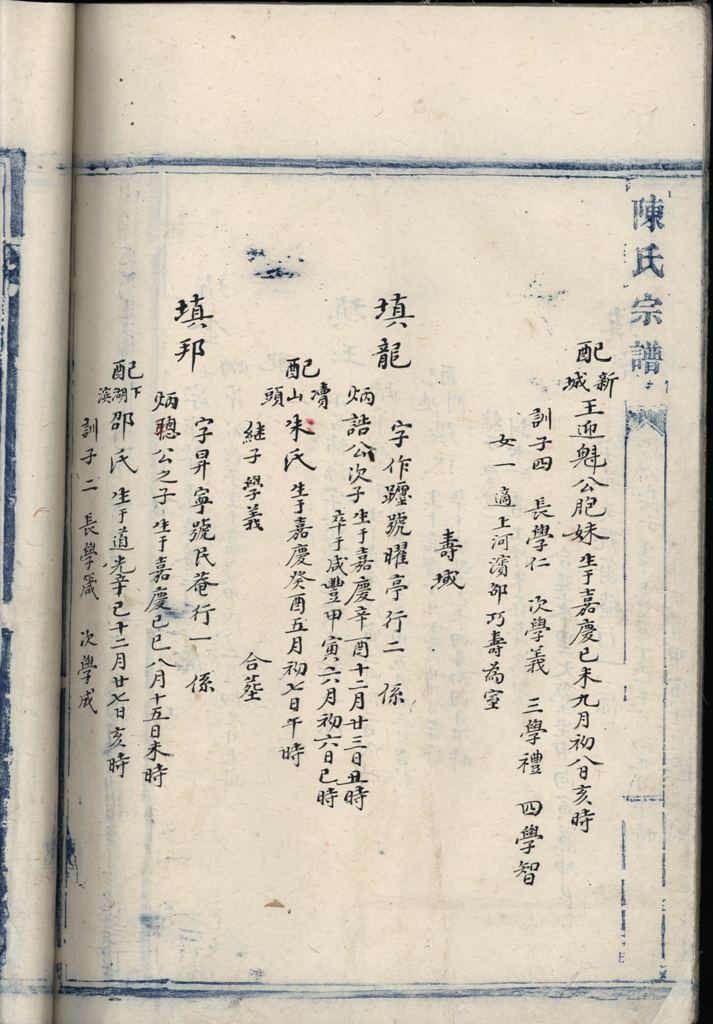 陳氏宗譜
配新城王迎魁公胞妹生于嘉慶己未九月初八日亥時
訓子四 長學仁 次學義 三學禮 四學智
女一 適上河濱邵巧壽為室
壽域
填龍 字作躔號曜亭行二 係
炳誥公次子生于嘉慶辛酉十二月廿三日丑時
卒于咸豐甲寅六月初六日巳時
配瀆山頭朱氏生于嘉慶癸酉五月初七日午時
継子學義 合塟
填邦 字昇寧號民菴行一 係
炳聰公之子生于嘉慶己巳八月十五日未時
配下湖濱邵氏生于道光辛巳十二月廿七日亥時
訓子二 長學箴 次學成